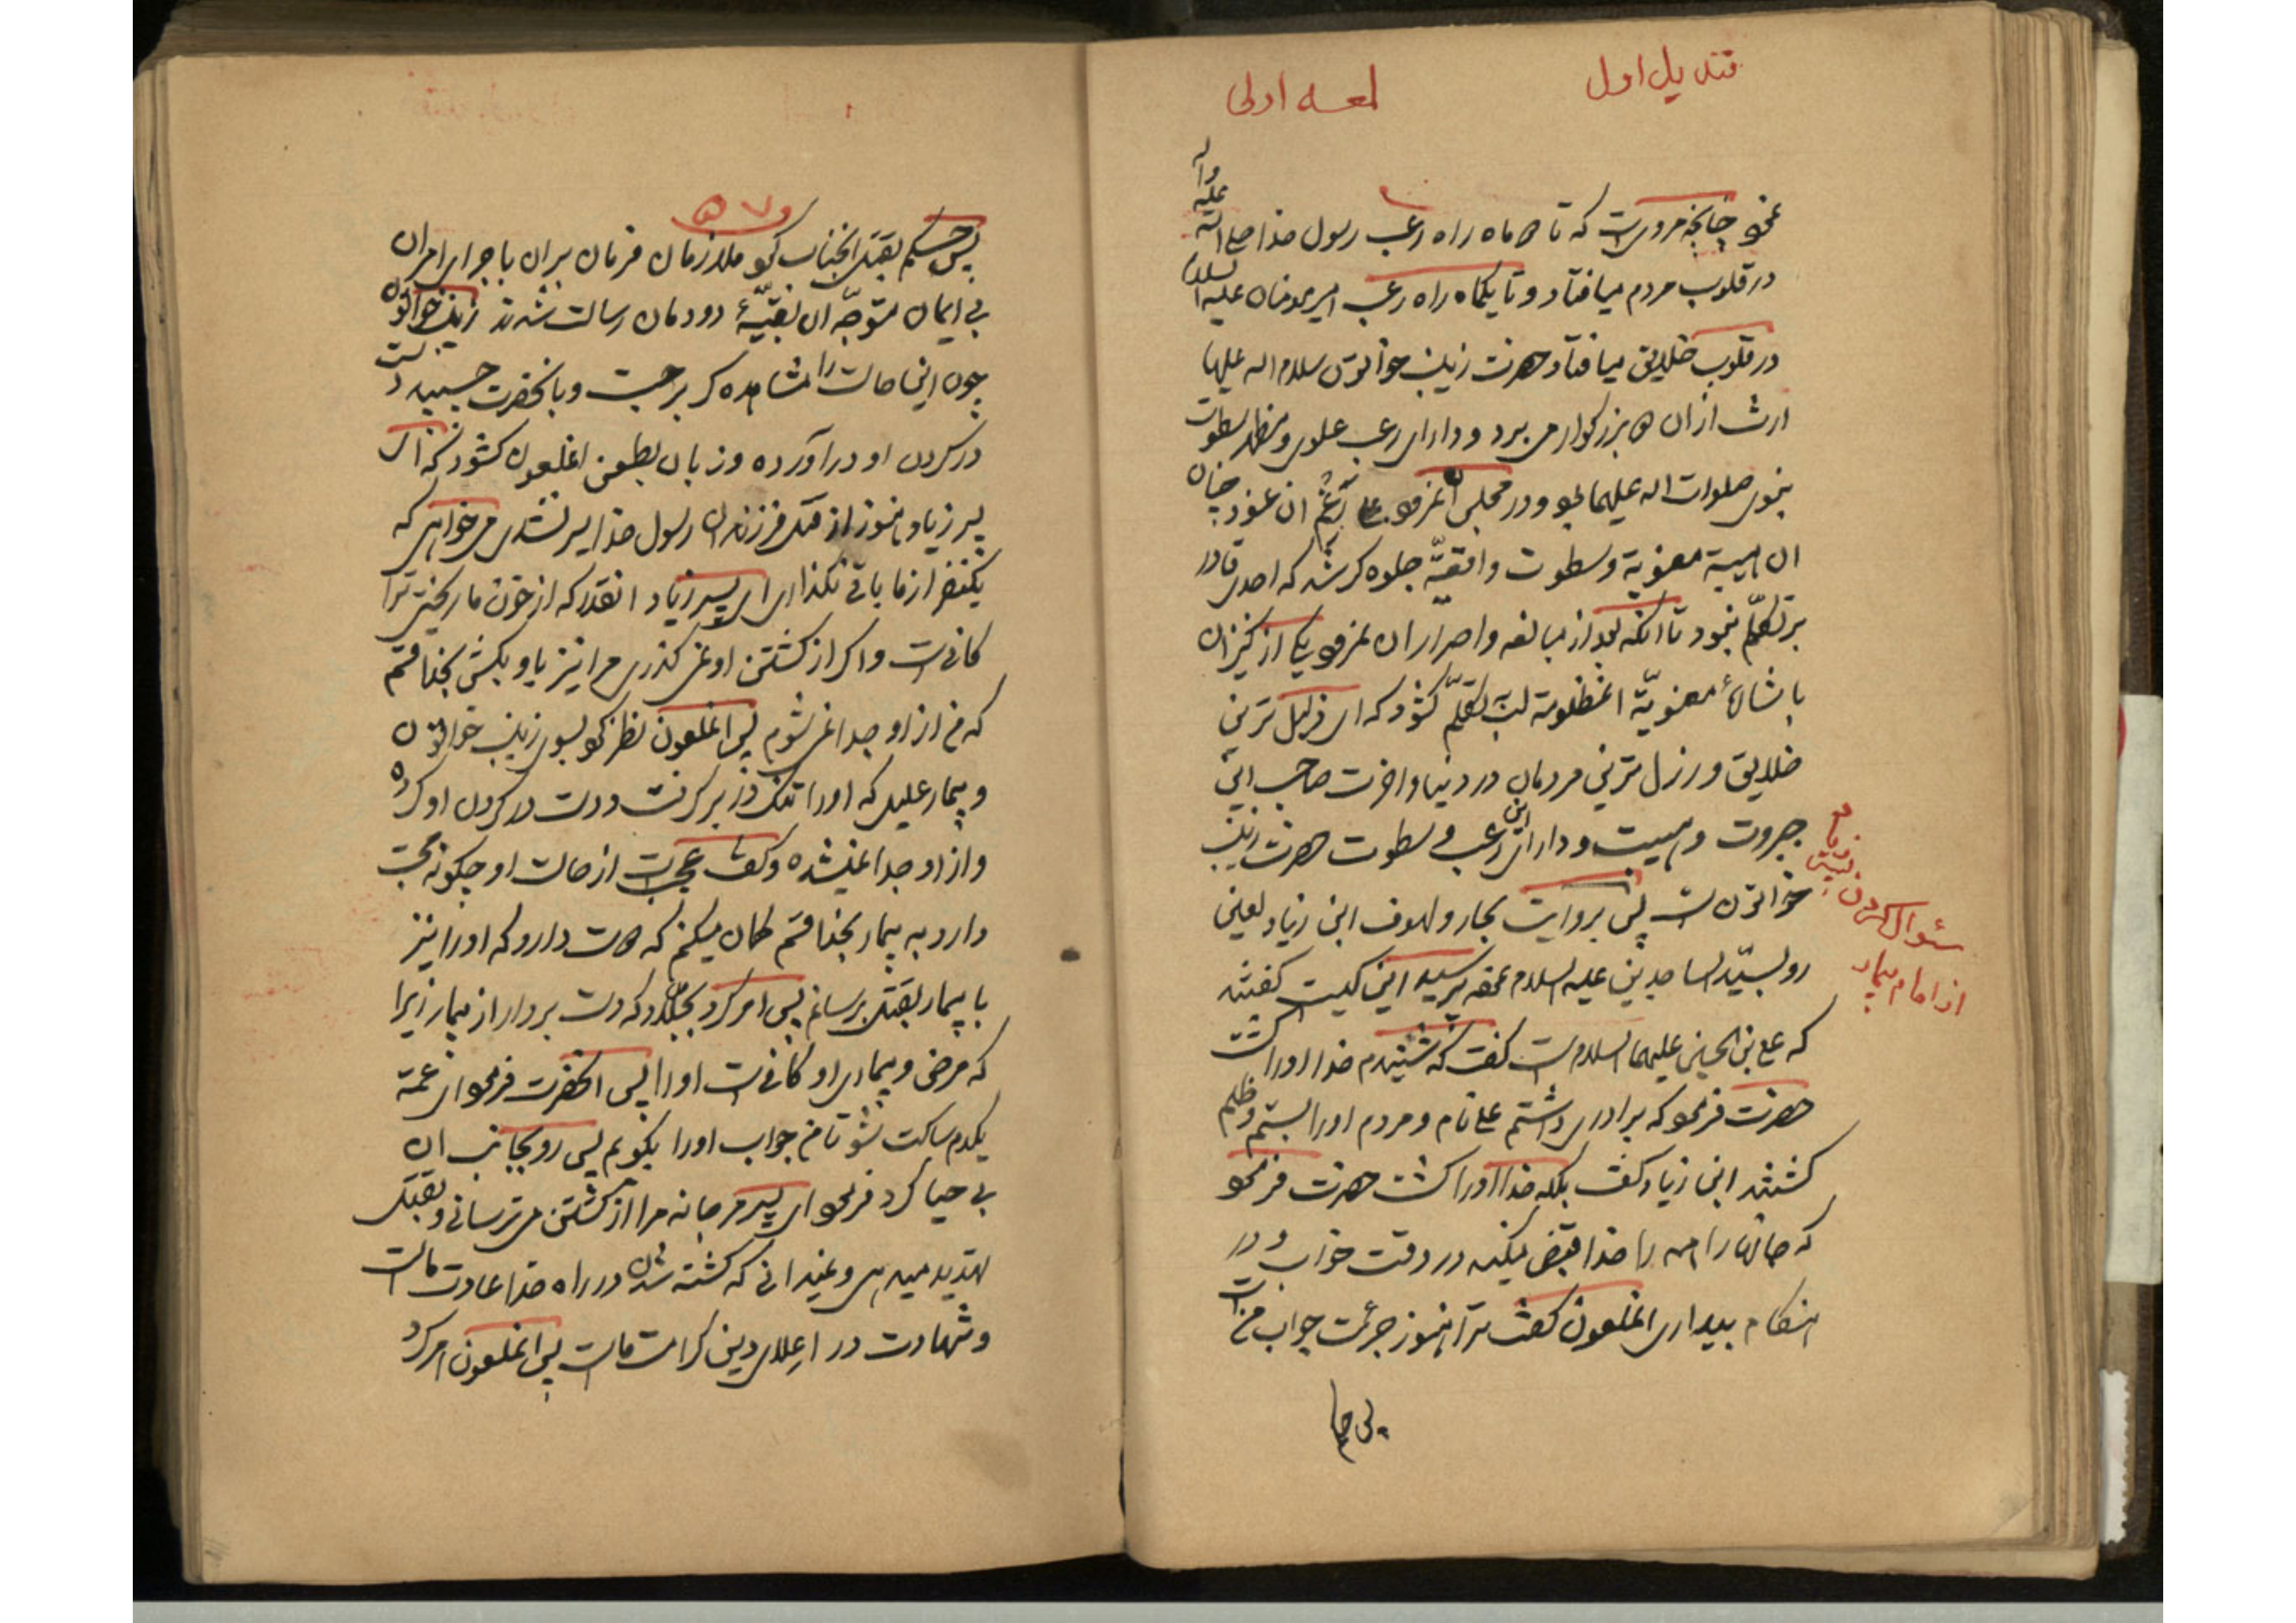 قندیل اول
لمعه اولی
چنانچه مرویست که تا ماه راه رعب رسول خدا صلی الله علیه وآله
در قلوب مردم میافتاد و تا یکماه راه رعب امیرمومنان علیه السلام
در قلوب خلایق میافتاد حضرت زینب خواتون سلام اله علیها
ارث از ان بزرکوار می برد و دارای رعب علوی و مظهر سطوت
نبوی صلوات اله علیهما بود و در مجلس ان
ان هیبة معنویة و سطوت واقعیّه جلوه کر شد که احدی قادر
برتکلّم نبود تا انکه بعد از مبالغه و اصرار ان یکی از کنیزان
باشارهٔ معنویّة انمظلومه لب بتکلّم کشود که ای ذلیل ترین
خلایق و رذل ترین مردمان در دنیا و اخرت صاحب این
جبروت و هیبت و دارای این رعب و سطوت حضرت زینب
خواتون است پس بروایت بحار و لهوف ابن زیاد لعین
رو بسیّد الساجدین علیه السلام نموده پرسید این کیست کفتند
که علی بن الحسین علیهما السلام است کفت که شنیدم خدا او را کشت
حضرت فرمود که برادری داشتم علی نام و مردم او را بستم و ظلم
کشتند ابن زیاد کفت بلکه خدا او را کشت حضرت فرمود
که جانها را همه را خدا قبض میکند در وقت خواب و در
هنکام بیداری انملعون کفت ترا هنوز جرئت جواب من است
سئوال کردن ابن زیاد
از امام بیمار
پس حکم بقتل انجناب نمود ملازمان فرمان بران باجرای امران
بی ایمان متوجّه ان بقیّهٔ دودمان رسالت شدند زینب خواتون
چون اینحالت را مشاهده کرد برجست و بانحضرت چسبید دست
در کردن او درآورده و زبان بطعن انملعون کشود که ای
پسر زیاد هنوز از قتل فرزندان رسول خدا سیر نشدی میخواهی که
یکنفر از ما باقی نکذاری ای پسر زیاد انقدر که از خون ما ریختی ترا
کافیست و اکر از کشتن او نمی کذری مرا نیز با او بکش بخدا قسم
که من از او جدا نمی شوم پس انملعون نظر نمود بسوی زینب خواتون
و بیمار علیل که او را تنک در بر کرفت و دست در کردن او کرده
و از او جدا نمیشد و کفت عجب است از حالت او چکونه محبت
دارد به بیمار بخدا قسم کمان میکنم که دوست دارد که او را نیز
با بیمار بقتل برسانم پس امر کرد بجلاد که دست بردار از بیمار زیرا
که مرض و بیماری او کافیست او را پس انحضرت فرمود ای عمّه
یکدم ساکت شو تا من جواب او را بکویم پس رو بجانب ان
بی حیا کرد فرمود ای پسر مرجانه مرا از کشتن می ترسانی و بقتل
تهدید میدهی و نمیدانی که کشته شدن در راه خدا عادت ماست
و شهادت در اعلای دین کرامت ماست پس انملعون امر کرد